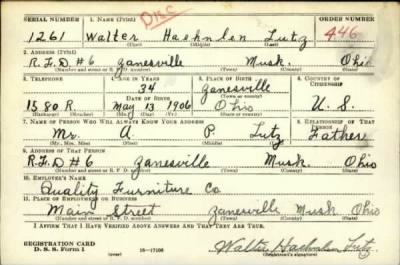 SERIAL NUMBER 1. NAME (Print) ORDER NUMBER
1261 Walter Haehnlen Lutz 446
(First) (Middle) (Last)
2. ADDRESS (Print)
R.F.D #6 Zanesville Musk. Ohio
(Number and street or R. F. D. number) (Town) (County) (State)
3. TELEPHONE 4. AGE IN YEARS 5. PLACE OF BIRTH 6. COUNTRY OF CITIZENSHIP
34 Zanesville
DATE OF BIRTH (Town or county)
1580 R May 13 1906 Ohio U. S.
(Exchange) (Number) (Mo.) (Day) (Yr.) (State or country)
7. NAME OF PERSON WHO WILL ALWAYS KNOW YOUR ADDRESS 8. RELATIONSHIP OF THAT PERSON
Mr. A. P. Lutz Father
(Mr., Mrs., Miss) (First) (Middle) (Last)
9. ADDRESS OF THAT PERSON
R.F.D #6 Zanesville Musk. Ohio
(Number and street or R. F. D. number) (Town) (County) (State)
10. EMPLOYER'S NAME
Quality Furniture Co
11. PLACE OF EMPLOYMENT OR BUSINESS
Main Street Zanesville Musk Ohio
(Number and street or R. F. D. number) (Town) (County) (State)
I AFFIRM THAT I HAVE VERIFIED ABOVE ANSWERS AND THAT THEY ARE TRUE.
REGISTRATION CARD
D. S. S. Form 1 16—17105 Walter Haehnlen Lutz.
(Registrant's signature)